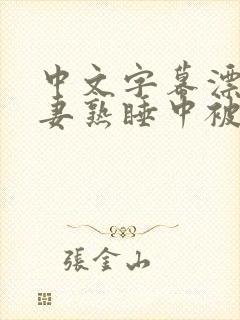 中文字幕漂
妻熟睡中被
張金山